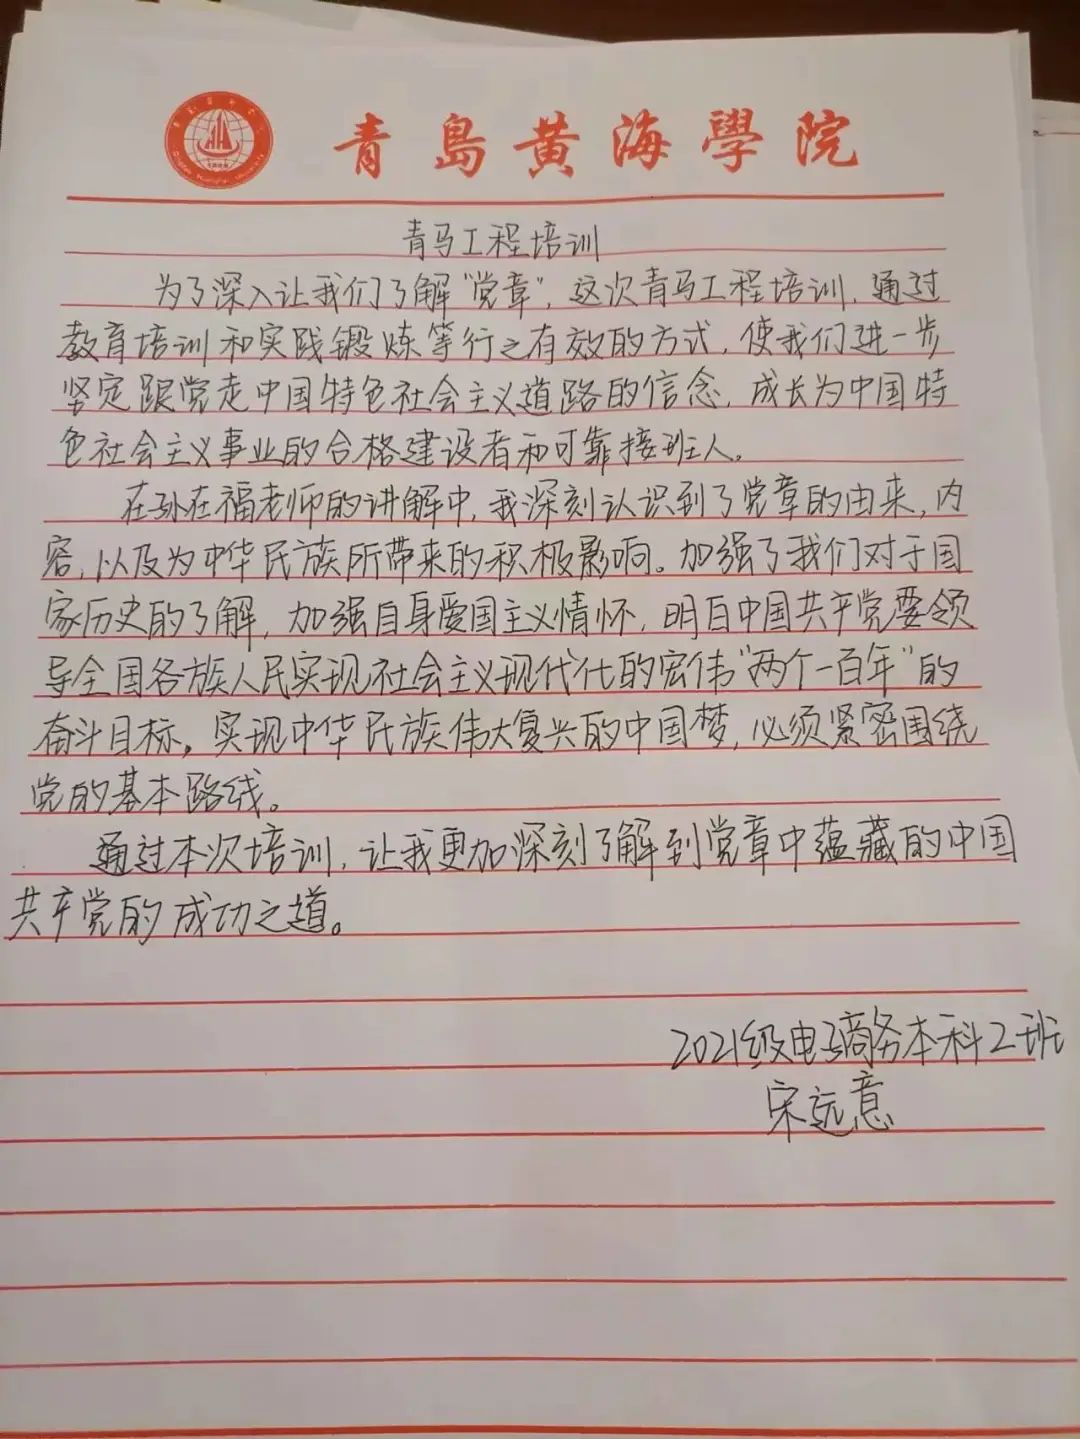 青島黄海學院
青马工程培训
为了深入让我们了解“党章”,这次青马工程培训,通过
教育培训和实践锻炼等行之有效的方式,使我们进一步
坚定跟党走中国特色社会主义道路的信念,成长为中国特
色社会主义事业的合格建设者和可靠接班人。
在孙在福老师的讲解中,我深刻认识到了党章的由来,内
容,以及为中华民族所带来的积极影响。加强了我们对于国
家历史的了解,加强自身爱国主义情怀,明白中国共产党要领
导全国各族人民实现社会主义现代化的宏伟“两个一百年”的
奋斗目标。实现中华民族伟大复兴的中国梦,必须紧密围绕
党的基本路线。
通过本次培训,让我更加深刻了解到党章中蕴藏的中国
共产党的成功之道。
2021级电子商务本科2班
宋远意